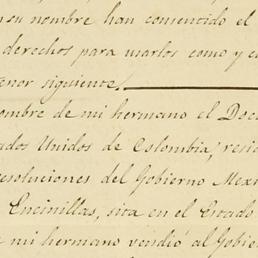 su nombre han consentido el
derechos para usarlos como y c
enor siguiente.
ombre de mi hermano el Doc
ados Unidos de Colombia, resi
esoluciones del Gobierno Mexi
Encinillas, sita en el Estado
mi hermano vendió al Gobie